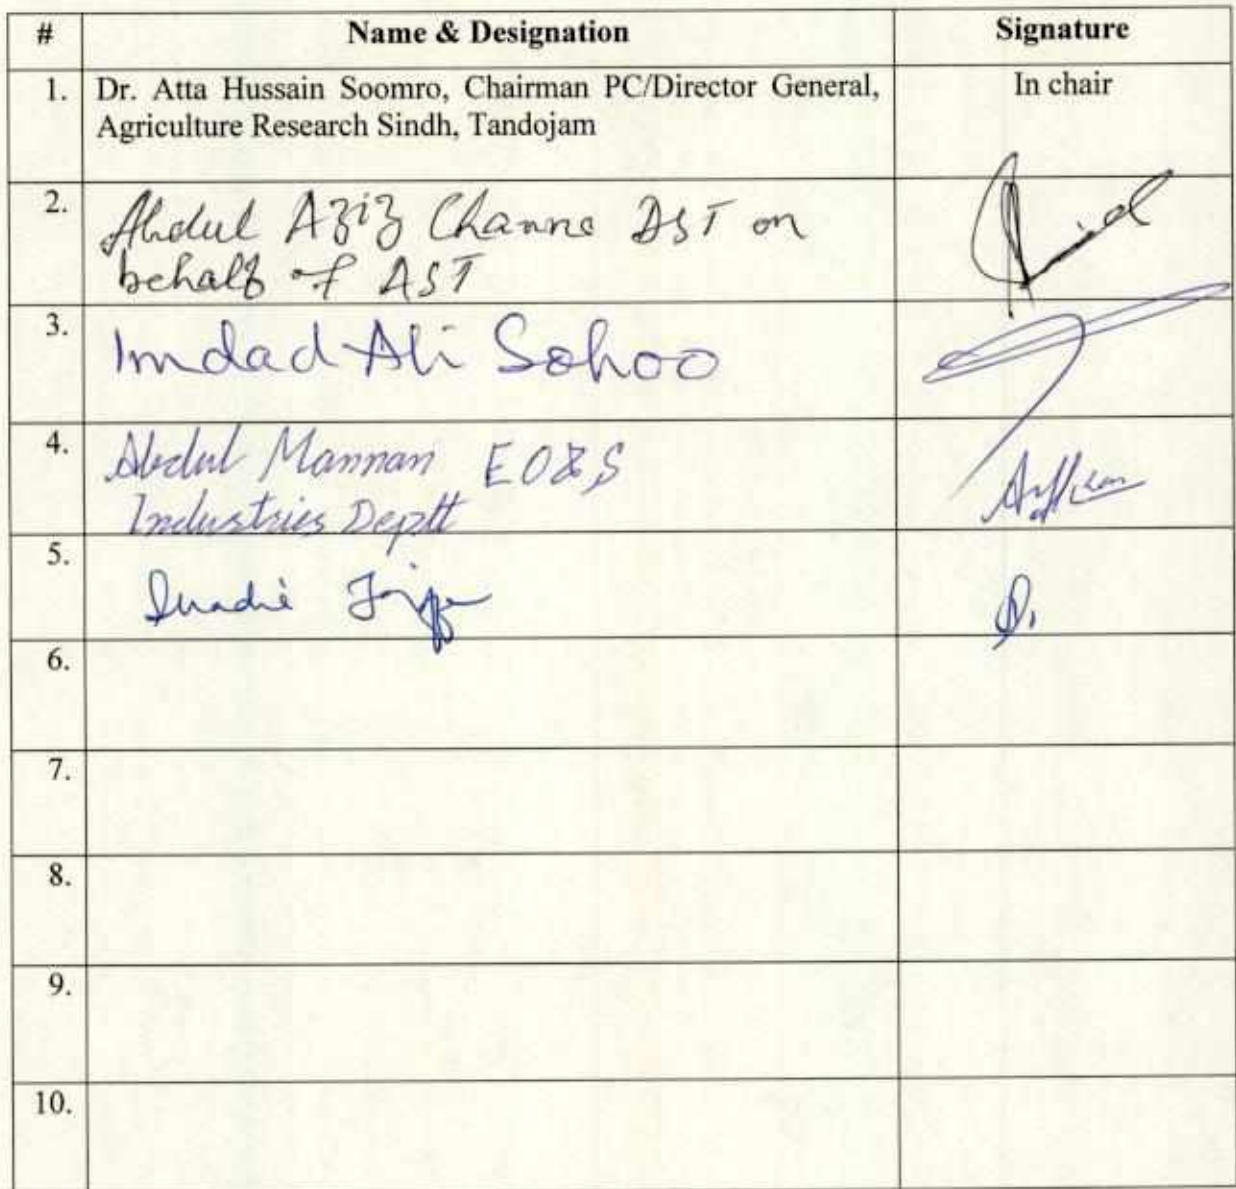 # Name & Designation Signature
1. Dr. Atta Hussain Soomro, Chairman PC/Director General, In chair
Agriculture Research Sindh, Tandojam
2. Abdul Aziz Channa DST on
behalf of AST
3. Imdad Ali Sohoo
4. Abdul Mannan EO&S
Industries Deptt
5.
6.
7.
8.
9.
10.